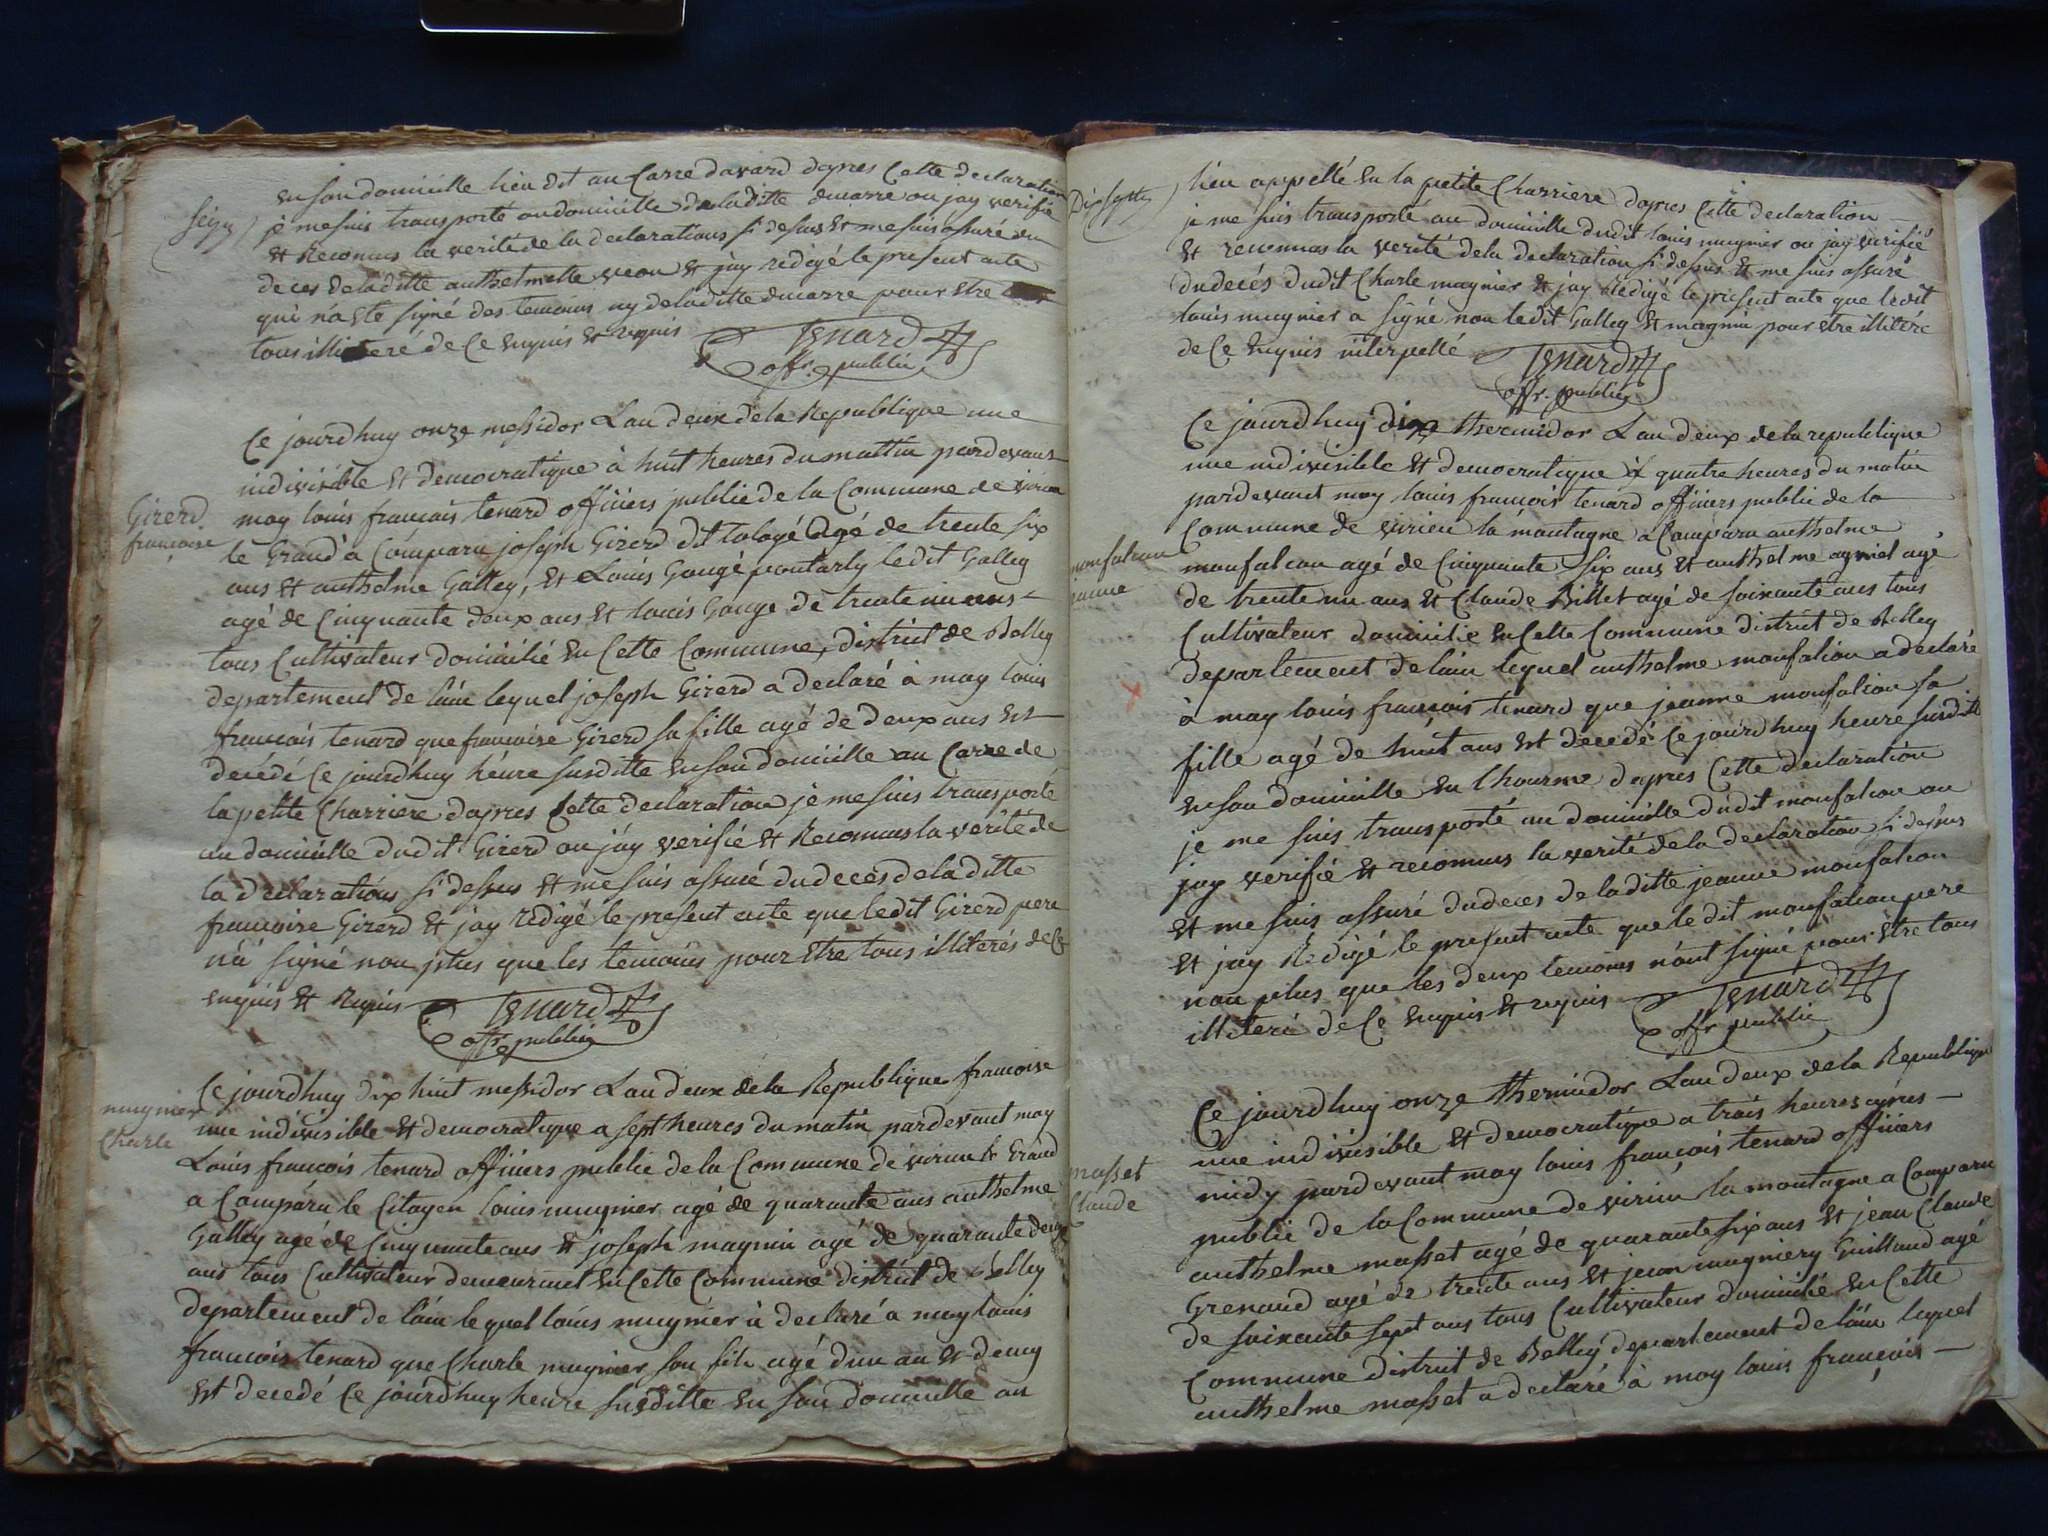 seize
en son domicille lieu dit au Carre davard dapres Cette declaration
je me suis transporté au domicille de laditte ducarre ou jay verifié
et Reconnus la verité de la declarations si desus et me suis assuré du
deces de laditte anthelmette veou et jay redigé le present acte
qui na esté signé des temoins ny de laditte ducarre pour etre
tous illiteré de Ce enquis et requis
Tenard
offr. public
Girerd
francoise
Ce jourdhuy onze messidor Lan deux de la Republique une
indivisible et democratique à huit heures du mattin pardevant
moy louis françois tenard officiers public de la Commune de virieu
le Grand a Comparu joseph Girerd dit agé de trente six
ans et anthelme Galley, et Louis Gougé pontarly ledit Galley
agé de Cinquante deux ans et louis Gouge de trente un ans
tous Cultivateur domicilié en Cette Commune, district de Belley
departement de lain lequel joseph Girerd a declaré à moy louis
francois tenard que francoise Girerd sa fille agé de deux ans est
decedé Ce jourdhuy heure susditte en son domicille au Carre de
la petite Charriere dapres Cette declaration je me suis transporté
au domicille dudit Girerd ou jay verifié et Reconnus la verité de
la declarations si dessus et me suis assuré du deces de laditte
francoise Girerd et jay redigé le present acte que ledit Girerd pere
n'a signé non plus que les temoins pour etre tous illiterés de Ce
enquis et Requis
Tenard
offr. public
mugnier
Charle
Ce jourdhuy dix huit messidor Lan deux de la Republique francoise
une indivisible et democratique a sept heures du matin pardevant moy
Louis francois tenard officiers public de la Commune de virieu le Grand
a Comparu le Citoyen louis mugnier agé de quarante ans anthelme
Galley agé de Cinquante ans et joseph magnin agé de quarante deux
ans tous Cultivateur demeurant en Cette Commune district de Belley
departement de lain lequel louis mugnier à declaré a moy louis
francois tenard que Charle mugnier son fils agé dun an et demy
est decedé Ce jourdhuy heure susditte en son domicille au
Dix Sept
lieu appellé en la petite Charriere dapres Cette declaration
je me suis transporté au domicille dudit louis mugnier ou jay verifié
et reconnus la verité de la declaration si desus et me suis assuré
du decés dudit Charle mugnier et jay redigé le present acte que ledit
louis mugnier a signé non ledit Galley et magnin pour etre illiteré
de Ce enquis interpellé
Tenard
offr. public
monfalcon
jeanne
Ce jourdhuy dix thermidor Lan deux de la republique
une indivisible et democratique à quatre heures du matin
pardevant moy louis francois tenard officiers public de la
Commune de virieu la montagne a Comparu anthelme
monfalcon agé de Cinquante six ans et anthelme agniel agé
de trente un ans et Claude Billet agé de soixante ans tous
Cultivateur domicilie en Cette Commune district de Belley
departement de lain lequel anthelme monfalcon a declaré
à moy louis francois tenard que jeanne monfalcon sa
fille agé de huit ans est decedé Ce jourdhuy heure susditte
en son domicille en Lhourme dapres Cette declaration
je me suis transporté au domicille dudit monfalcon ou
jay verifié et reconnus la verité de la declaration si dessus
et me suis assuré du deces de laditte jeanne monfalcon
et jay Redigé le present acte que ledit monfalcon pere
non plus que les deux temoins n'ont signé pour etre tous
illiteré de Ce enquis et requis
Tenard
offr public
masset
Claude
Ce jourdhuy onze thermidor Lan deux de la Republique
une indivisible et democratique a trois heures apres
midy pardevant moy louis françois tenard officiers
public de la Commune de virieu la montagne a Comparu
anthelme masset agé de quarante six ans et jean Claude
Grenaud agé de trente ans et jean mugniery Guilland agé
de soixante sept ans tous Cultivateur domicilié en Cette
Commune district de Belley departement de lain lequel
anthelme masset a declaré à moy louis françois